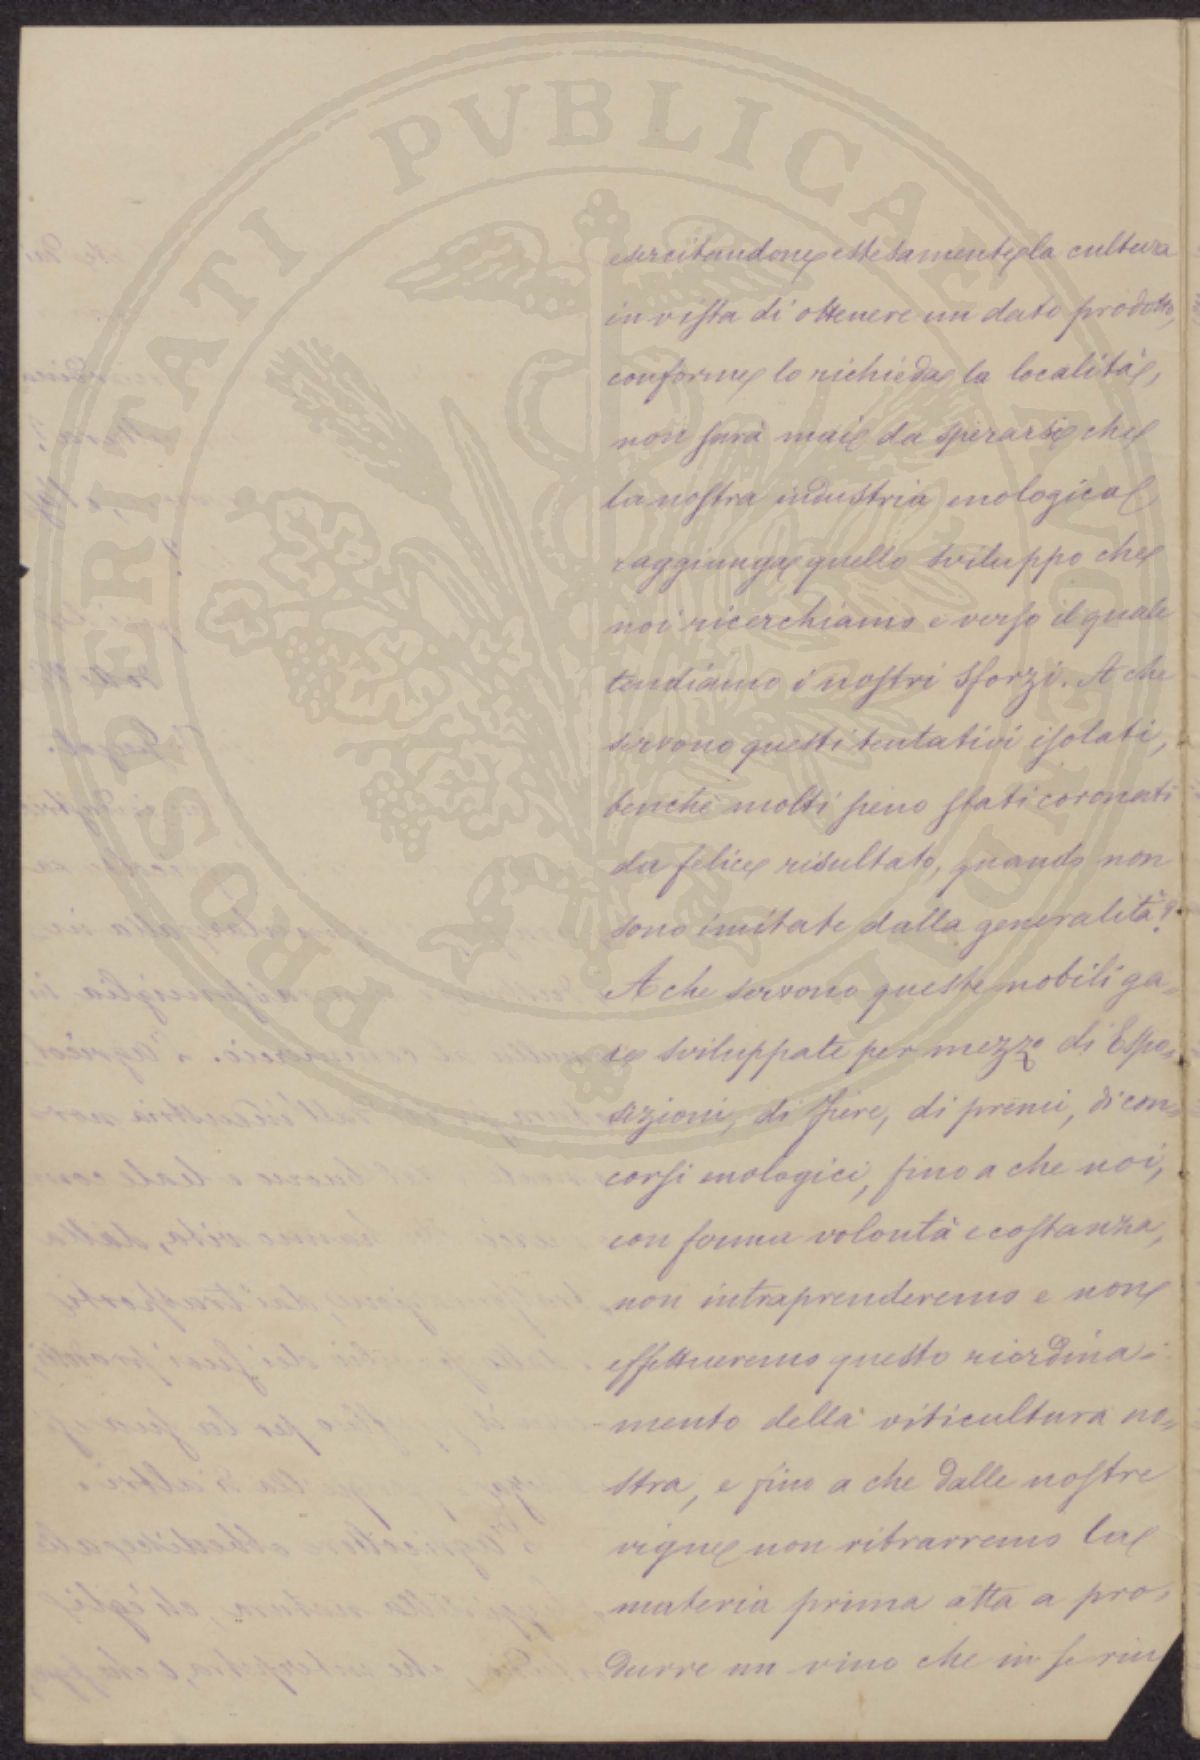 PROSPERITATI PVBLICAE AVGENDAE
esercitandone estesamente la cultura
in vista di ottenere un dato prodotto,
conforme lo richieda la località,
non sarà mai da sperarsi che
la nostra industria enologica
raggiunga quello sviluppo che
noi ricerchiamo e verso il quale
tendiamo i nostri sforzi. A che
servono questi tentativi isolati,
benchè molti sieno stati coronati
da felice risultato, quando non
sono imitate dalla generalità?
A che servono queste nobili ga=
re sviluppate per mezzo di Espo=
sizioni, di fiere, di premi, di con=
corsi enologici, fino a che noi,
con ferma volontà e costanza,
non intraprenderemo e non
effettueremo questo riordina=
mento della viticultura no=
stra, e fino a che dalle nostre
vigne non ritrarremo la
materia prima atta a pro=
durre un vino che in se riu